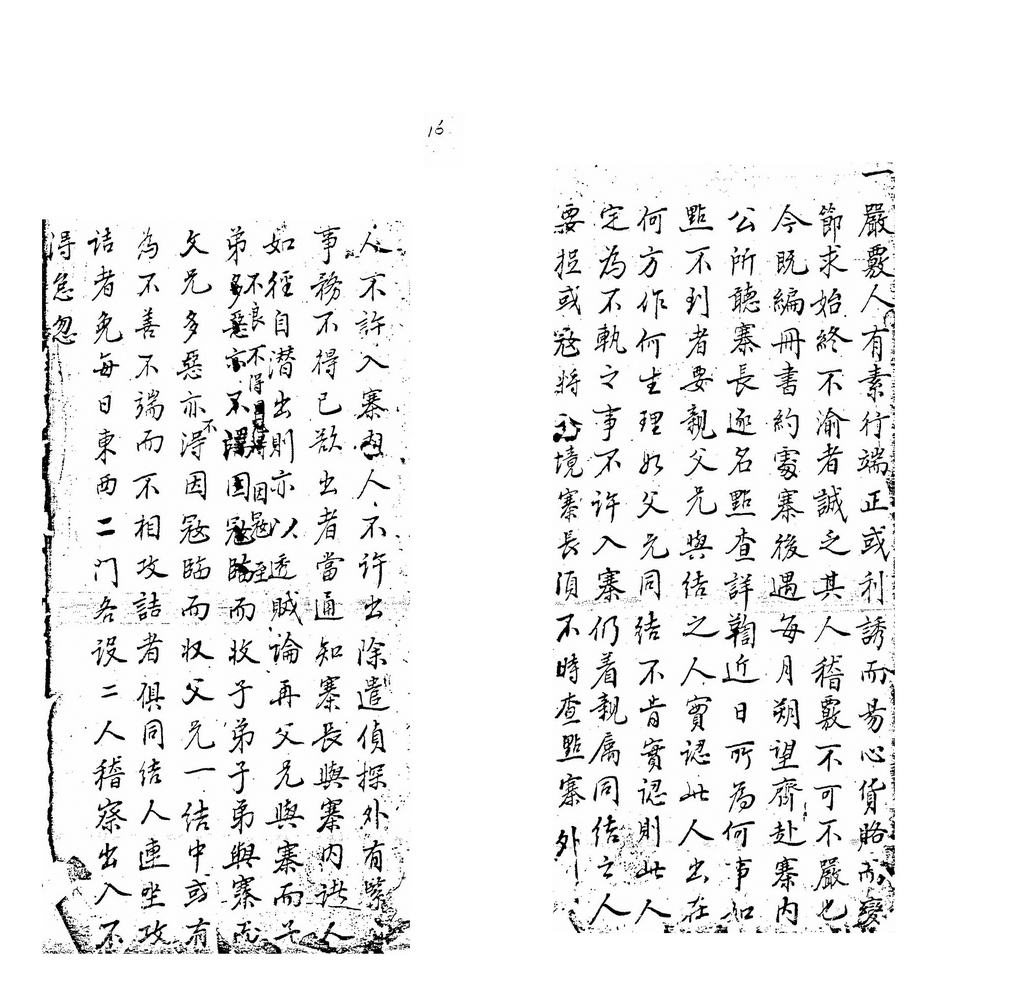 16
一嚴覈人有素行端正或利誘而易心貨賂而變
節求始終不渝者誠乏其人稽覈不可不嚴也
今既編冊書約䕫寨後遇每月朔望齊赴寨內
公所聽寨長逐名點查詳鞫近日所為何事如
點不到者要親父兄與結之人實認此人出在
何方作何生理如父兄同結不肯實認則此人
定為不軌之事不许入寨仍着親属同结之人
要捉或寇將境寨長須不時查點寨外
人不許入寨內人不许出除遣偵探外有緊
事務不得已欲出者當通知寨長與寨內訣人
如徑自潜出則亦以透賊論再父兄與寨而子
不良不得因寇至
弟多惡亦不得因寇臨而收子弟子弟與寨而
父兄多惡亦不得因寇臨而収父兄一结中或有
為不善不端而不相攻詰者俱同结人連坐攻
詰者免每日東西二门各设二人稽察出入不
得怠忽